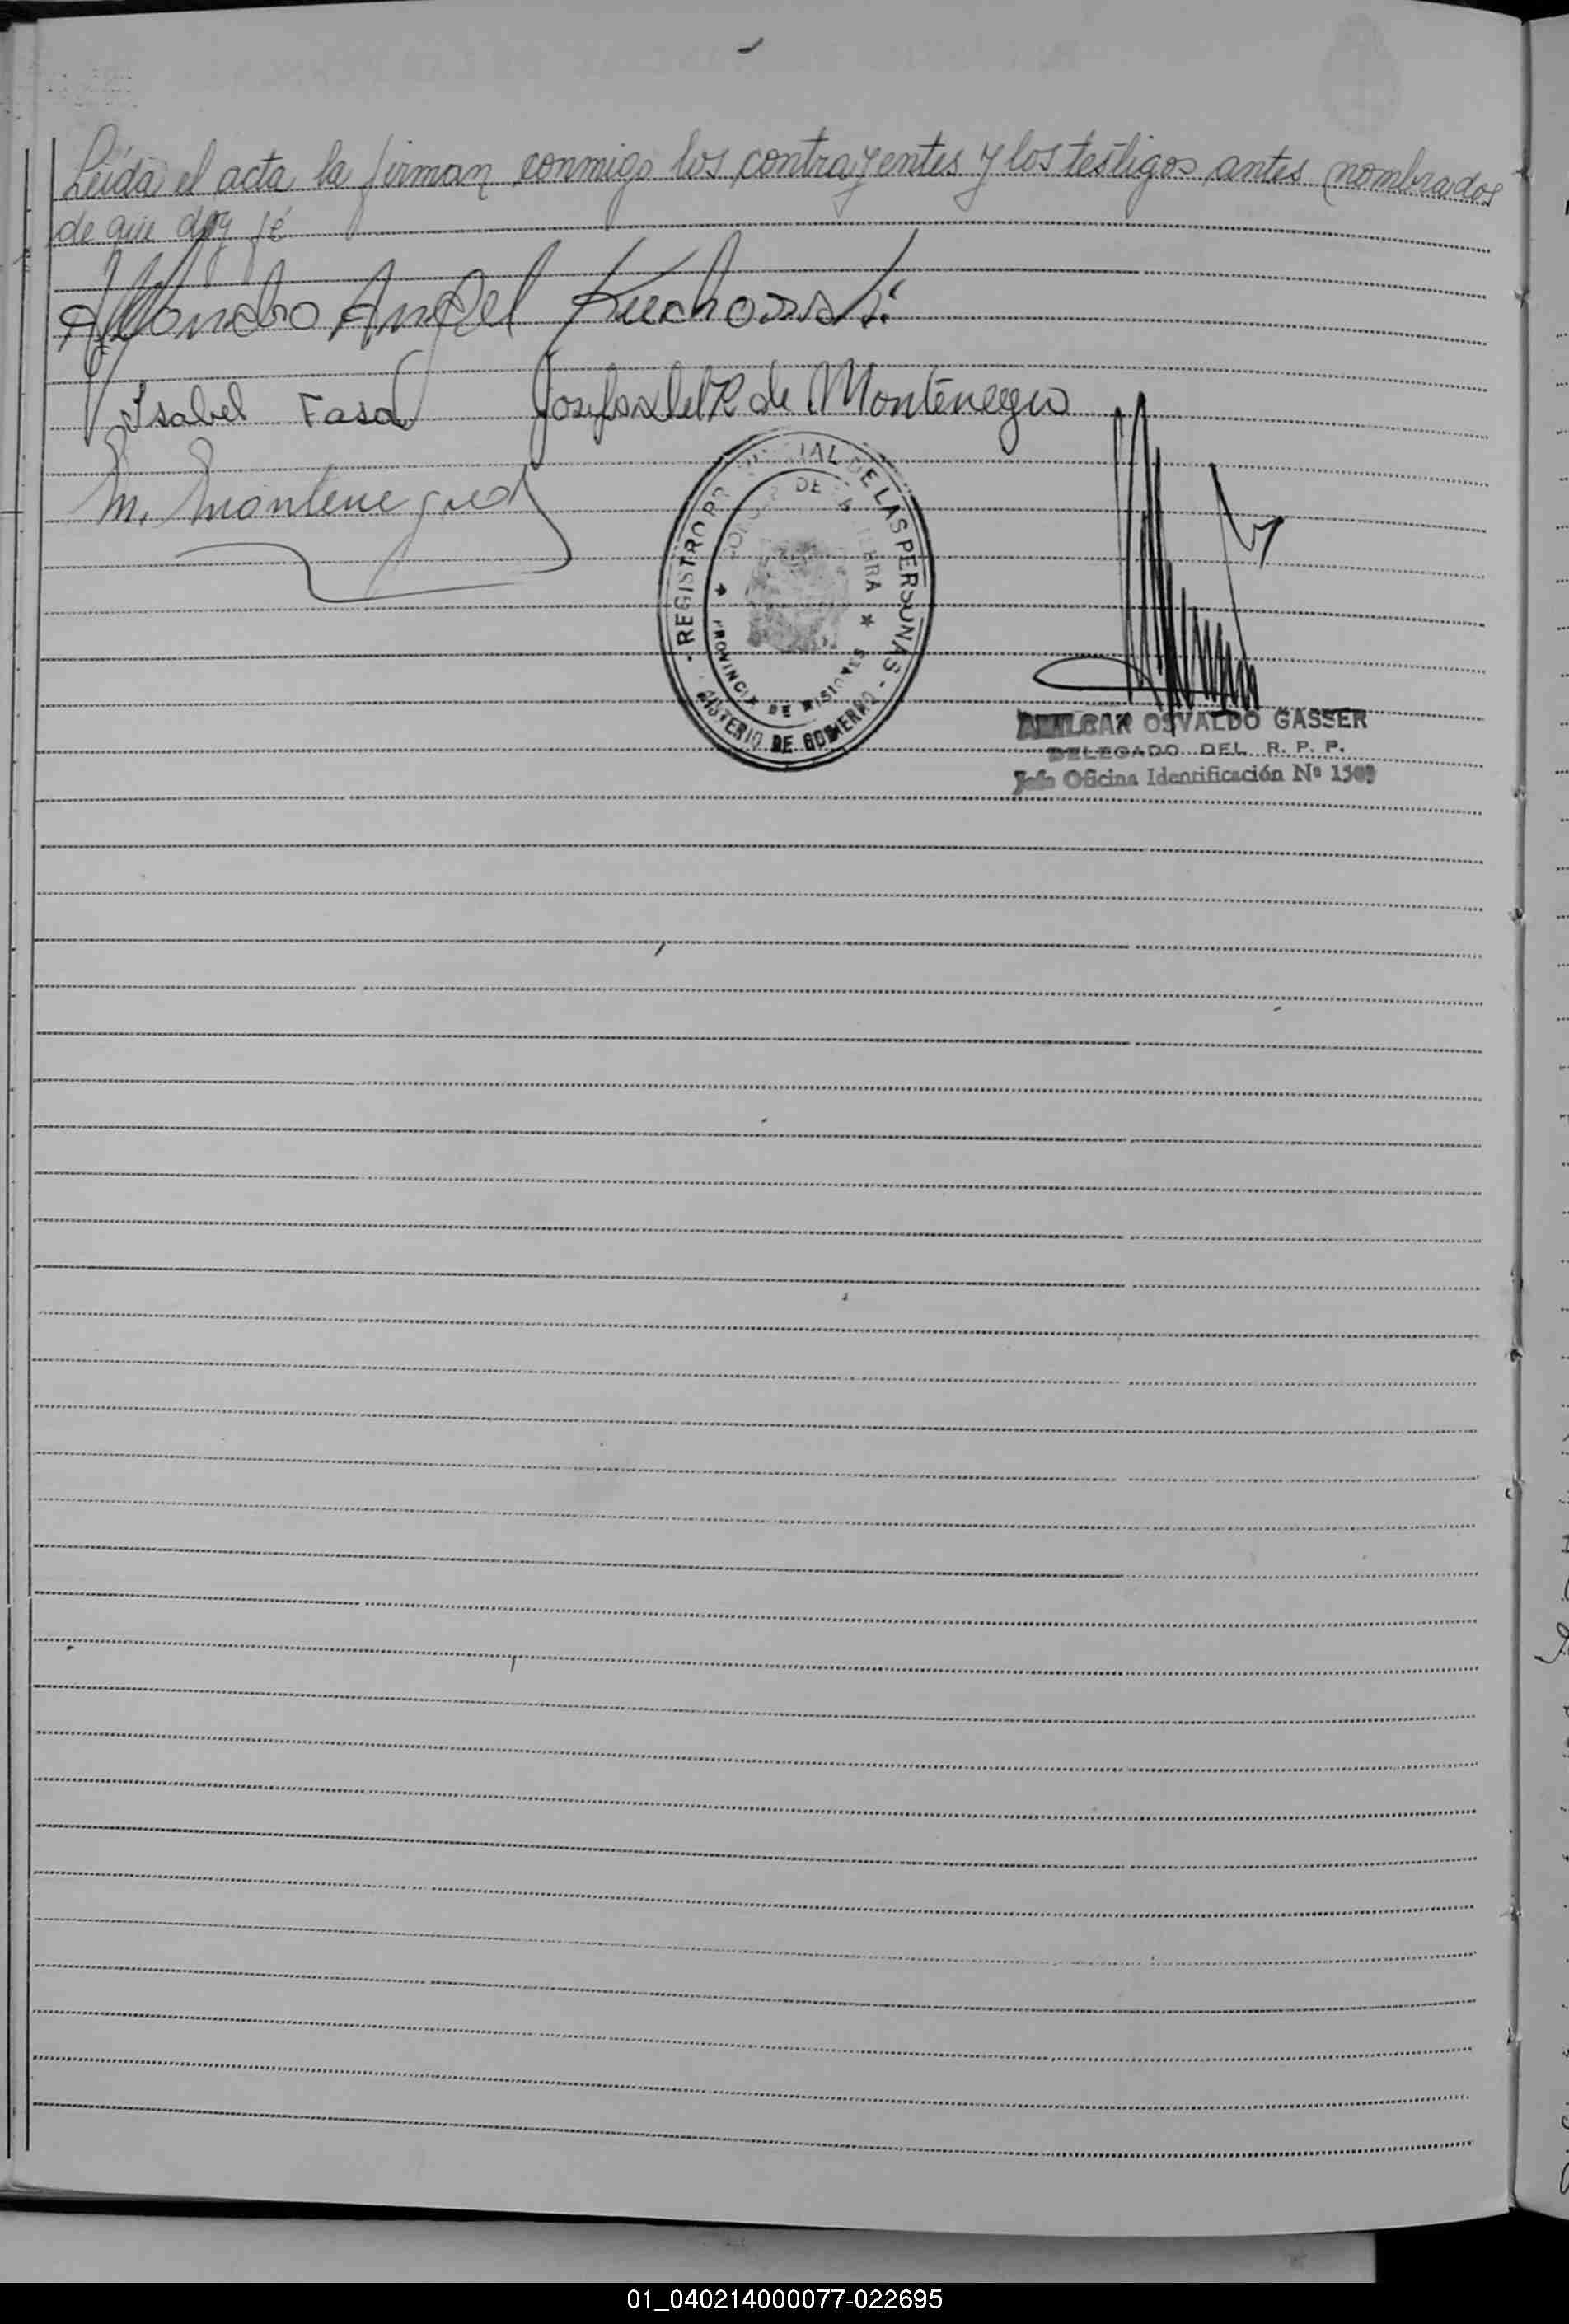 Leída el acta la firman conmigo los contrayentes y los testigos antes nombrados
de que doy fé
Angel
Isabel Fasa Josefa de Montenegro
M. Montenegro
REGISTRO PROVINCIAL DE LAS PERSONAS
PROVINCIA DE MISIONES
MINISTERIO DE GOBIERNO
AMILCAR OSVALDO GASSER
DELEGADO DEL R. P. P.
Jefe Oficina Identificación Nº 1509
01_040214000077-022695